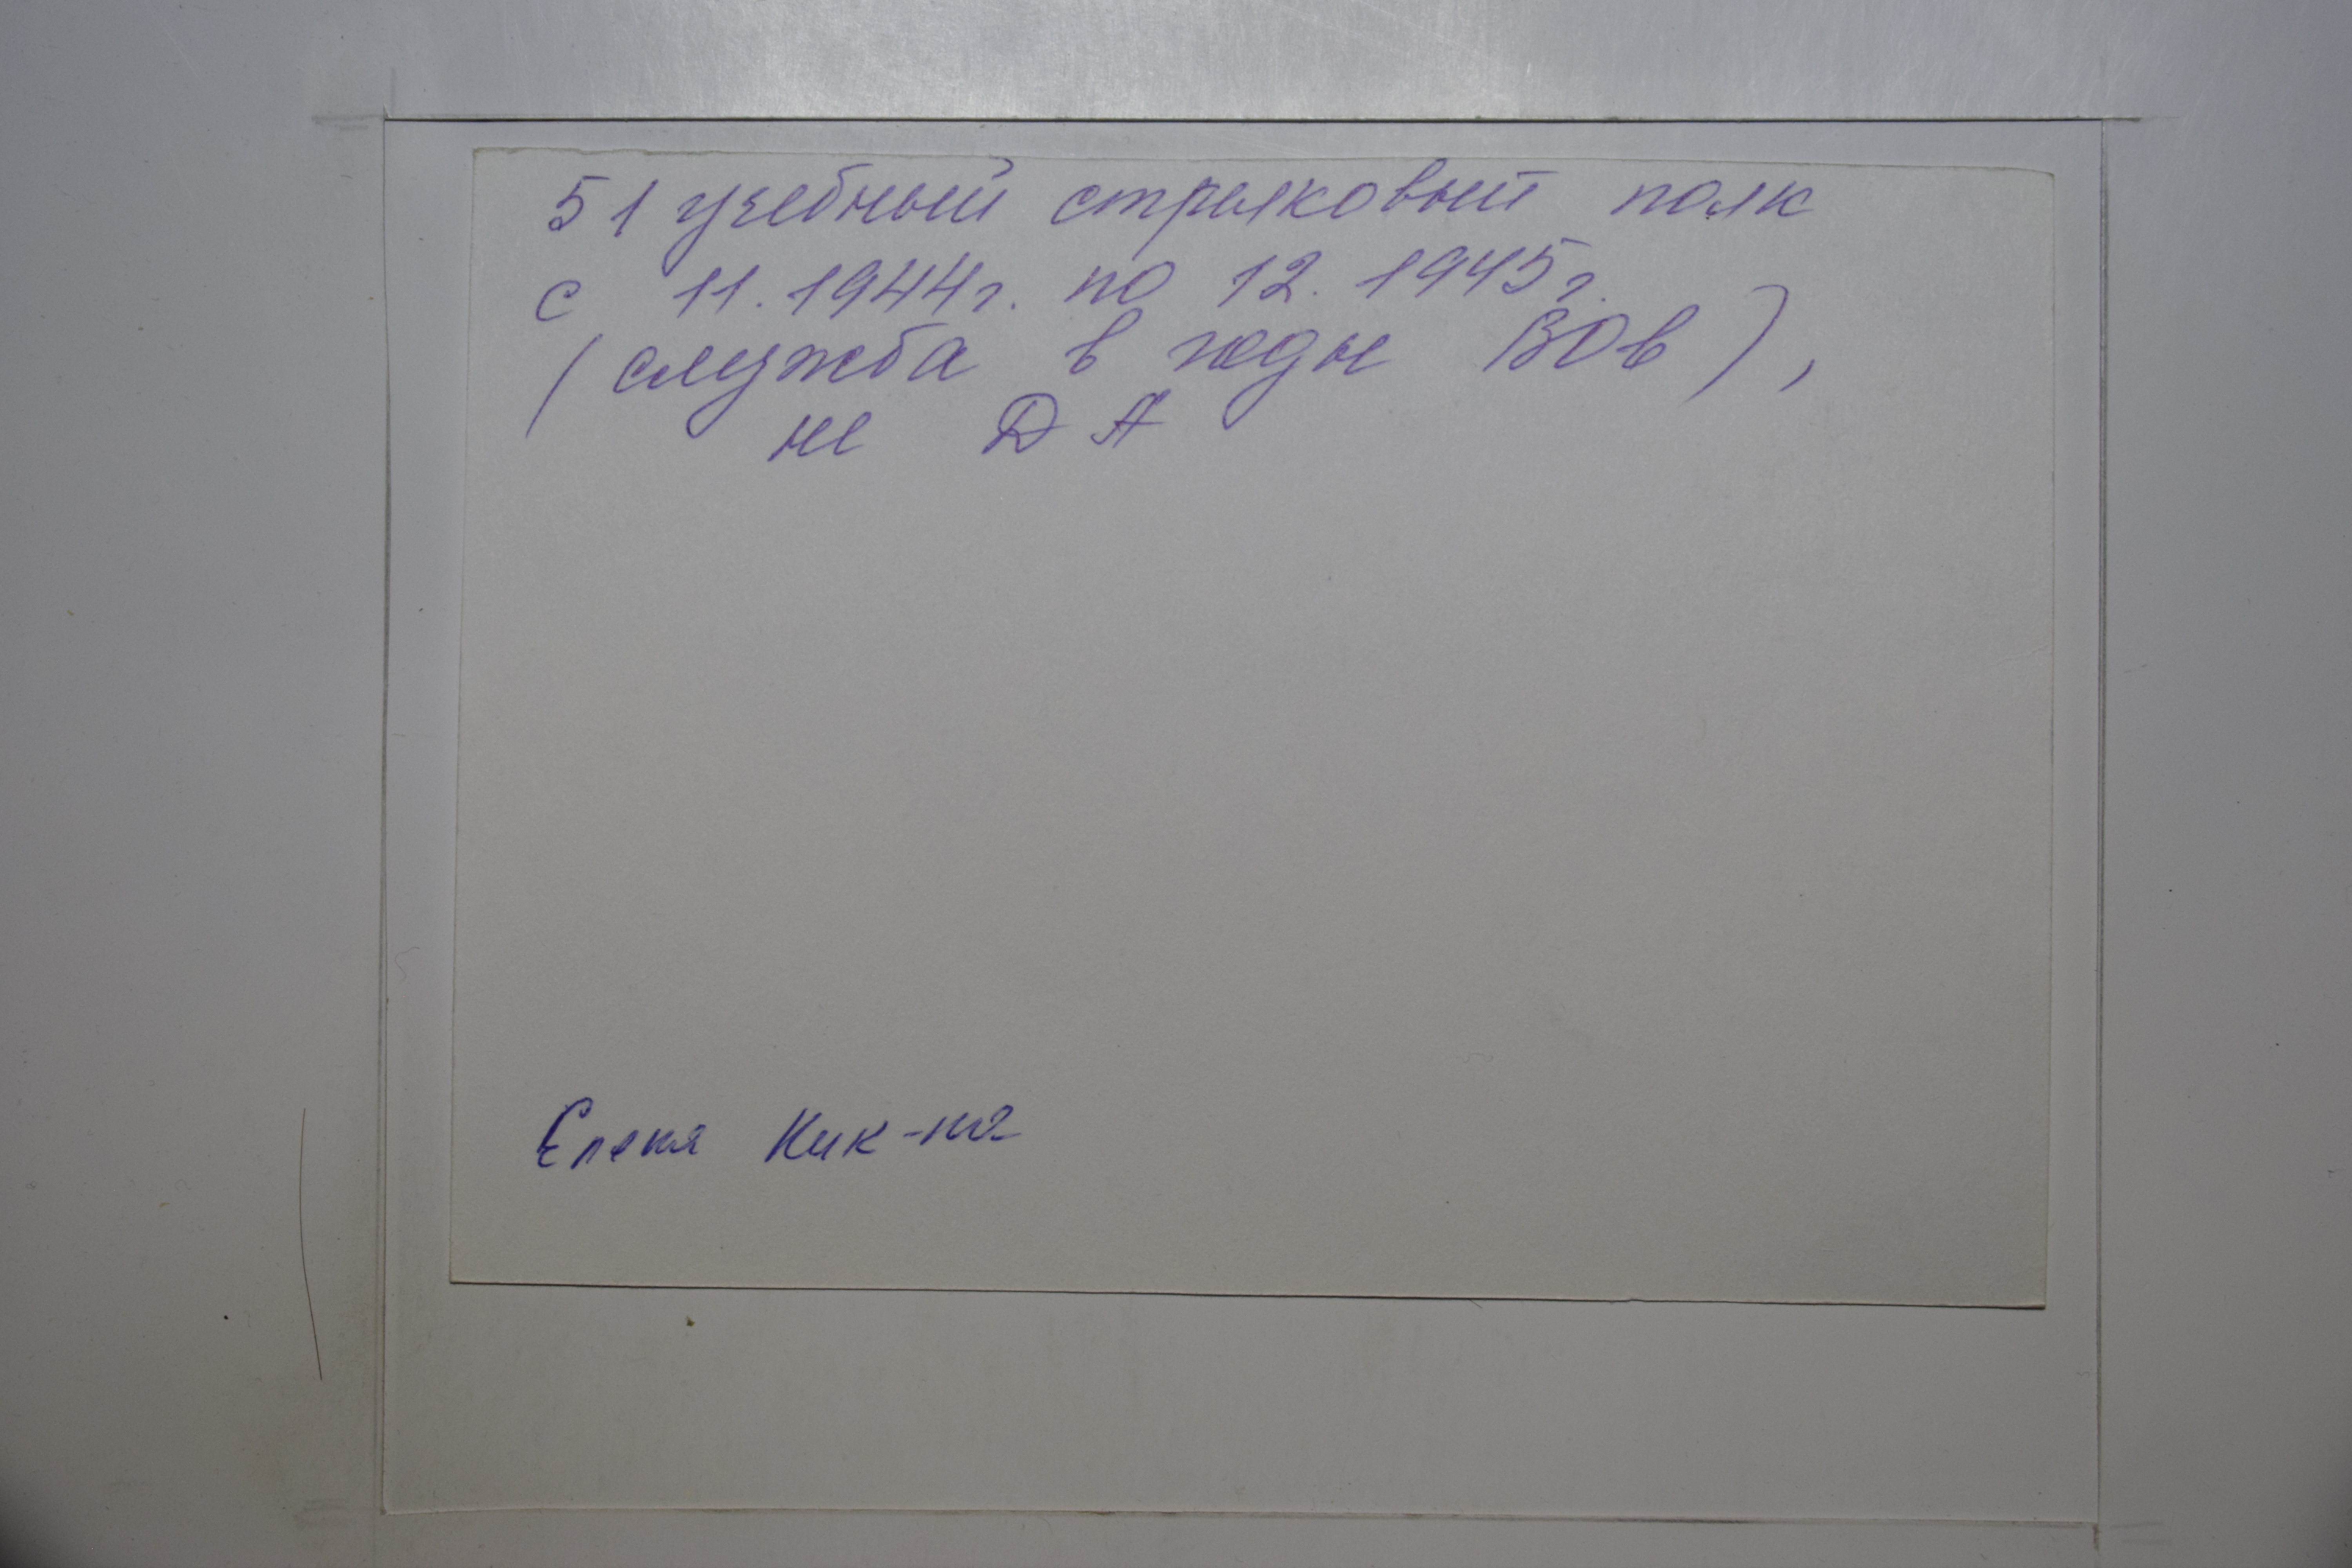 51 учебный стрелковый полк
с 11.1944г. по 12.1945г.
(служба в годы ВОв),
не ДА
Елена Ник-на